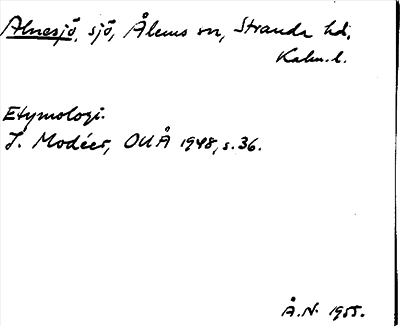 Alnesjö, sjö, Ålems sn, Stranda hd,
Kalm. l.
Etymologi.
I. Modéer, OUÅ 1948, s. 36.
Å. N. 1955.